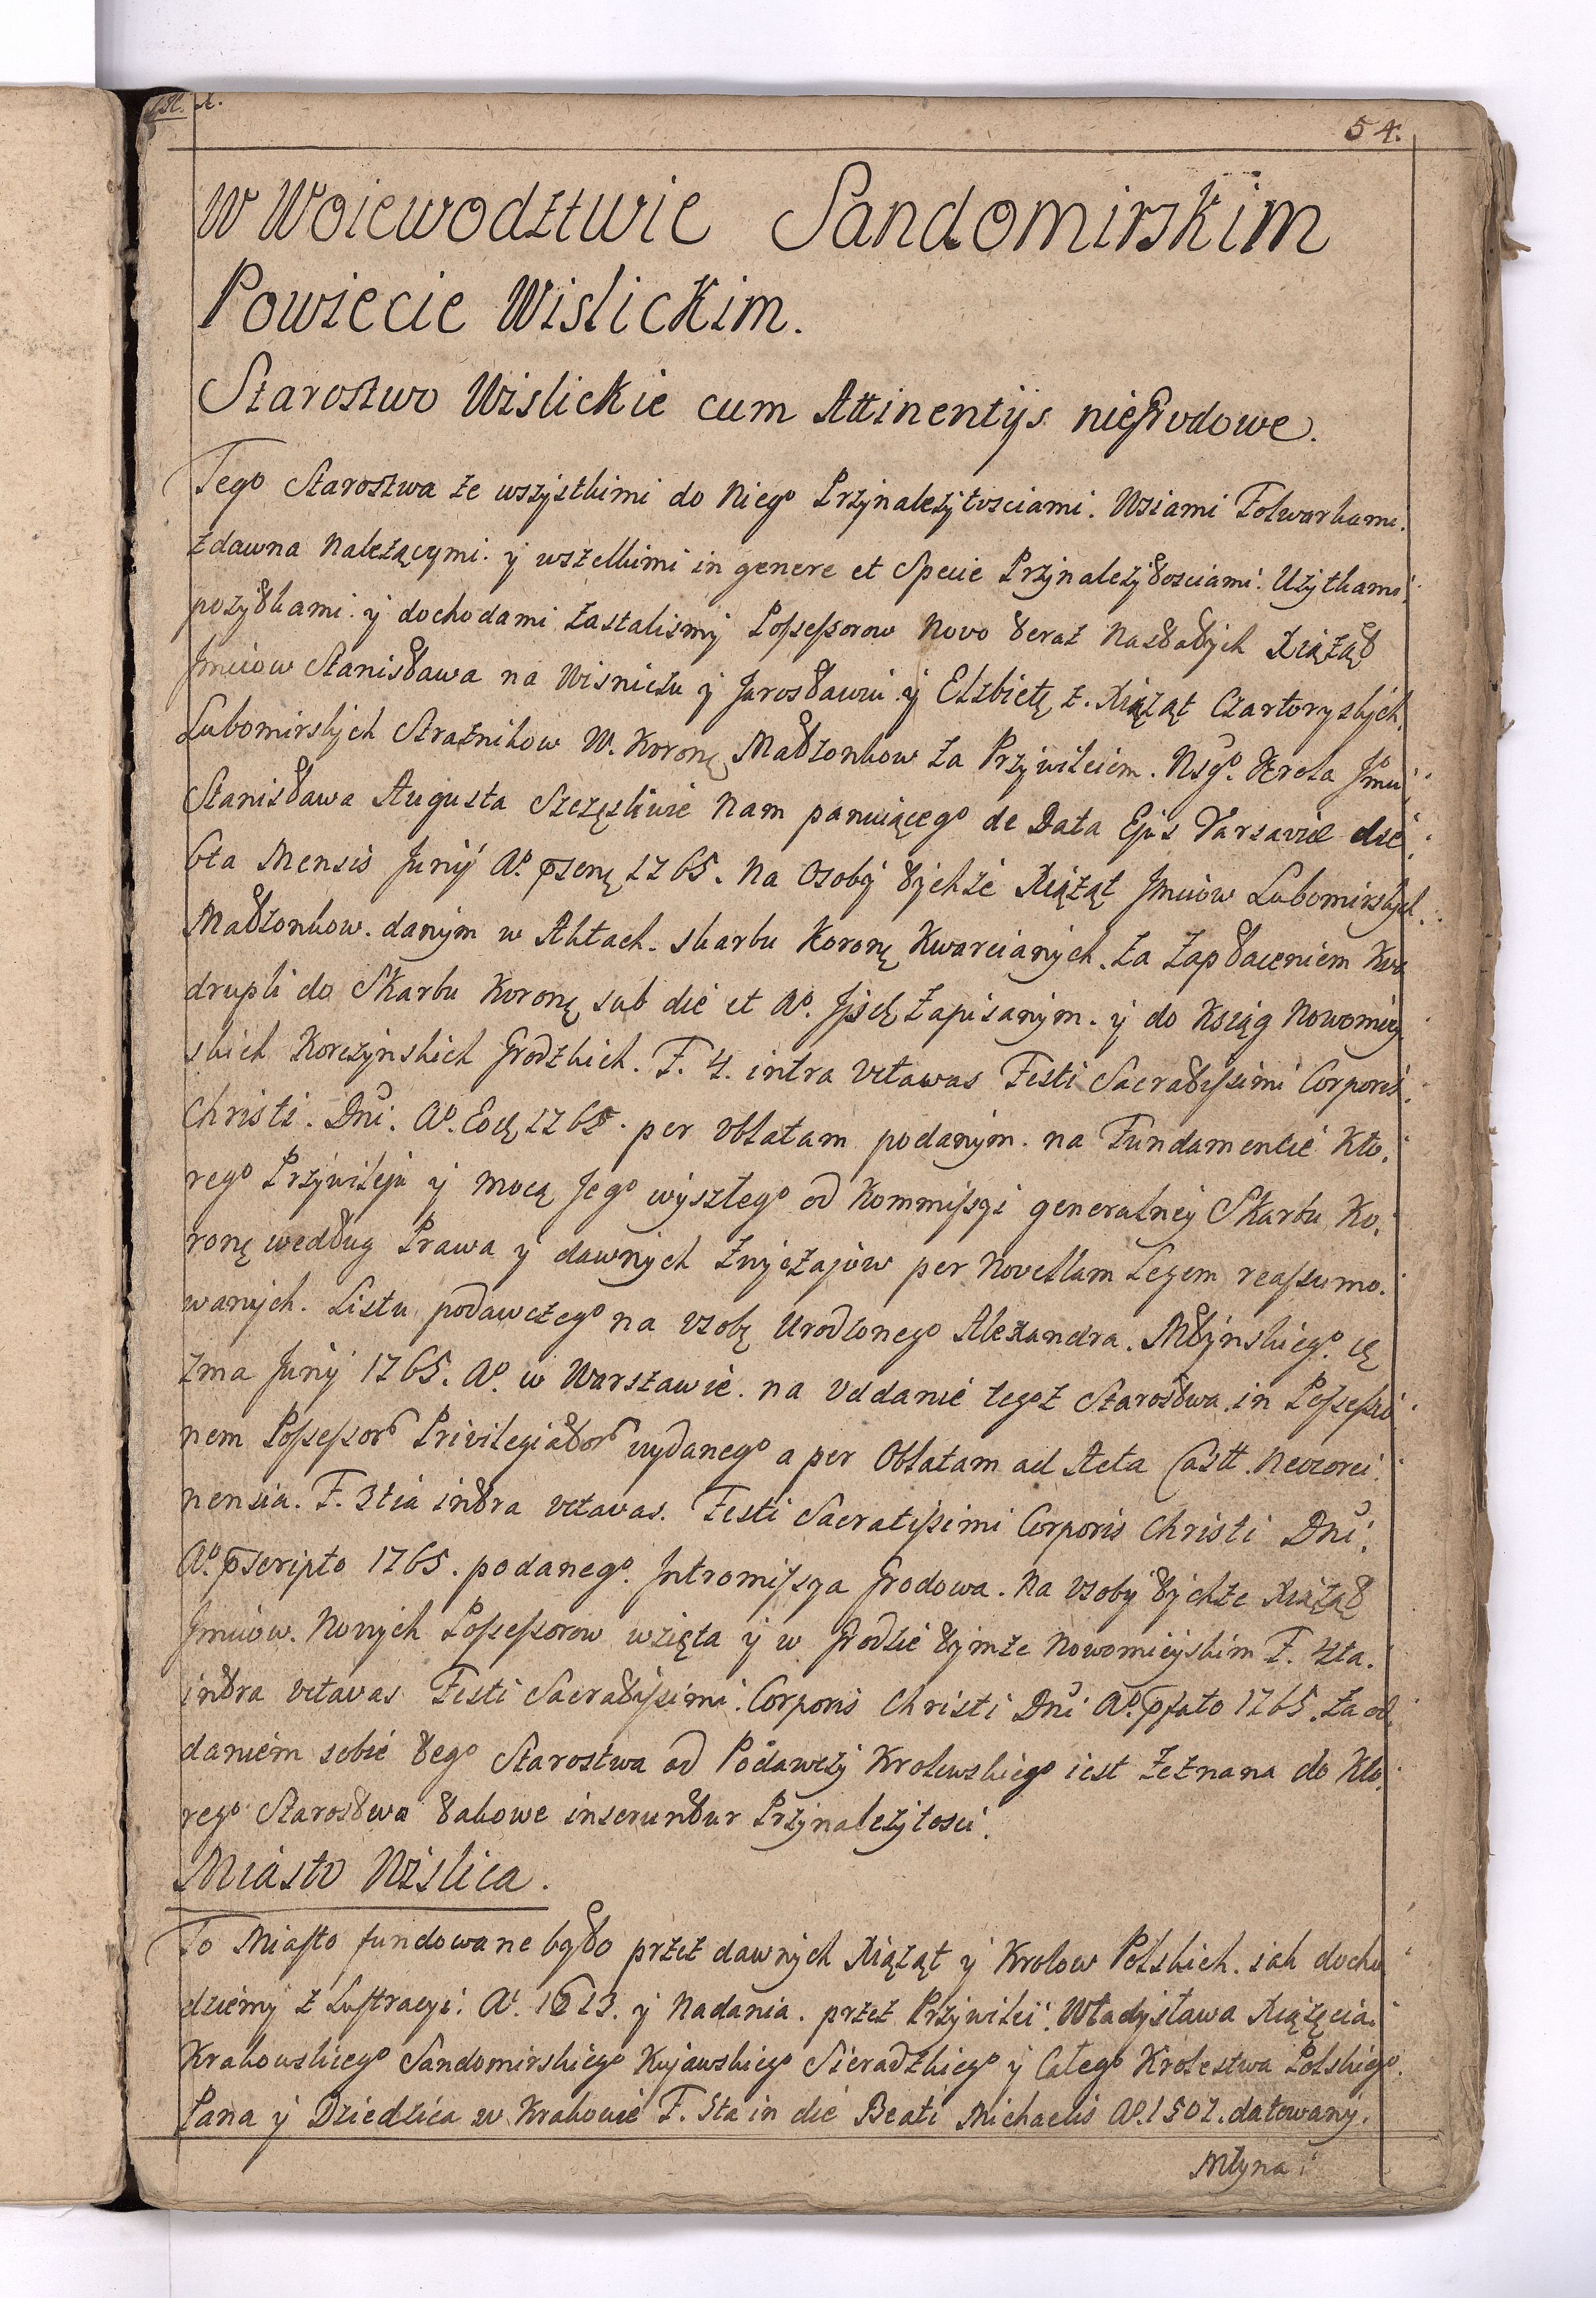 54.
W Woiewodztwie Sandomirskim
Powiecie Wislickim.
Starostwo Wislickie cum Attinentijs nieGrodowe.
Tego Starostwa ze wszystkimi do niego Przynależytosciami. Wsiami Folwarkami.
zdawna należącymi. y wszelkimi in genere et Specie Przynależytosciami. Użytkami.
pozytkami. y dochodami zastalismy Possessorow Novo teraz nastałych Xiążąt
Jmciow Stanisława na Wisniczu y Jarosławiu y Elzbietę z. Xiążąt Czartoryskych.
Lubomirskych Strażnikow W. Koronę Małżonkow za Przywileiem. Nsgo. Krola Jmci
Stanisława Augusta Szczęsliwie nam panuiącego de Data Ejus Varsaviæ die
6ta Mensis Junij Ao. psenę 1765. na Osoby tychże Xiążąt Jmciow Lubomirskych.
Małżonkow. danym w Aktach. skarbu Koronę Kwarcianych. za zapłaceniem Kwa
drupli do Skarbu Koronę sub die et Ao. Jisdę zapisanym. y do Xsiąg Nowomiey
skich Korczynskich Grodzkich. F. 4. intra Octavas Festi Sacratissimi Corporis.
Christi. Dni. Ao. Eodę 1765. per Oblatam podanym. na Fundamencie Kto.
rego Przywileju y mocą Jego wyszłego od Kommissyi generalney Skarbu Ko.
ronę według Prawa y dawnych Zwyczajow per Novellam Legem reassumo.
wanych. Listu podawczego na Osobę Urodzonego Alexandra. Młynskiego. dę
7ma Junij 1765. Ao. w Warszawie. na Oddanie tegoż Starostwa in Possessio
nem Possessor Privilegiator wydanego a per Oblatam ad Acta Castt. Neocorci
nensia. F. 3tia intra Octavas. Festi Sacratissimi Corporis Christi Dni.
Ao. pscripto 1765. podanego. Intromissya Grodowa. na Osoby tychże Xiążąt
Jmciow. Nowych Possessorow wzięta y w Grodzie tymże Nowomieyskim F. 4ta.
intra Octavas Festi Sacratissimi. Corporis Christi Dni Ao. pfato 1765. za od
daniem sobie tego Starostwa od Podawczy Krolewskiego iest zeznana do Kto
rego Starostwa takowe inseruntur Przynależytosci.
Miasto Wislica.
To Miasto fundowane było przez dawnych Xiążąt y Krolow Polskich. iak docho
dziemy z Lustracyi. Ao. 1613. y Nadania. przez Przywilei. Władysława Xiążęcia
Krakowskiego Sandomirskiego Kujawskiego Sieradzkiego y Całego Krolestwa Polskiego.
Pana y Dziedzica w Krakowie F. 5ta in die Beati Michaelis Ao. 1507. datowany.
Młyna